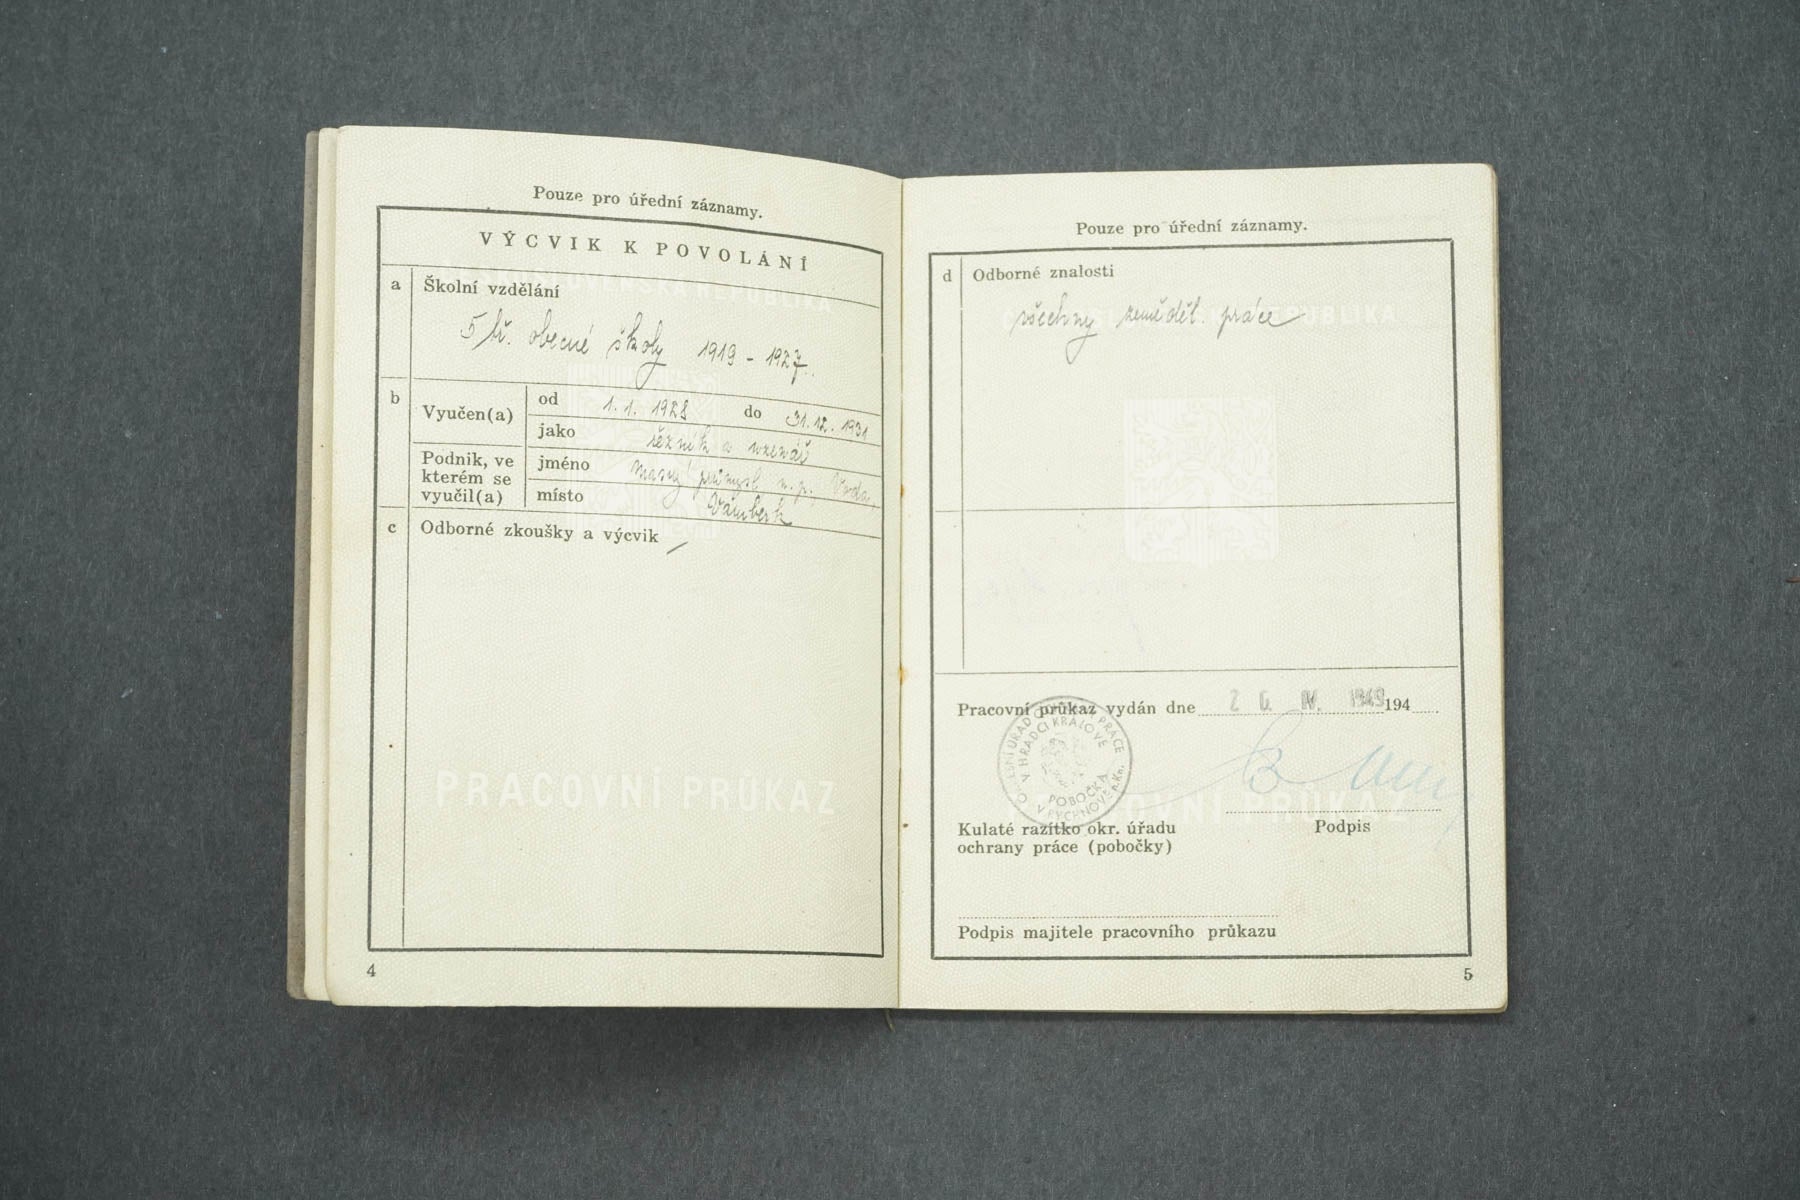 Pouze pro úřední záznamy.
VÝCVIK K POVOLÁNÍ
a Školní vzdělání
5 tř. obecné školy 1919 - 1927.
b Vyučen(a) od 1.1. 1928 do 31.12. 1931
jako řezník a uzenář
Podnik, ve kterém se vyučil(a)
jméno Masný průmysl n.p.
místo Vamberk
c Odborné zkoušky a výcvik
PRACOVNÍ PRŮKAZ
4
Pouze pro úřední záznamy.
d Odborné znalosti
všechny zeměděl. práce
Pracovní průkaz vydán dne IV. 1949 194
OCHRANY PRÁCE
V HRADCI KRÁLOVÉ
POBOČKA
V RYCHNOVĚ n.Kn.
PRACOVNÍ PRŮKAZ
Kulaté razítko okr. úřadu
ochrany práce (pobočky)
Podpis
Podpis majitele pracovního průkazu
5